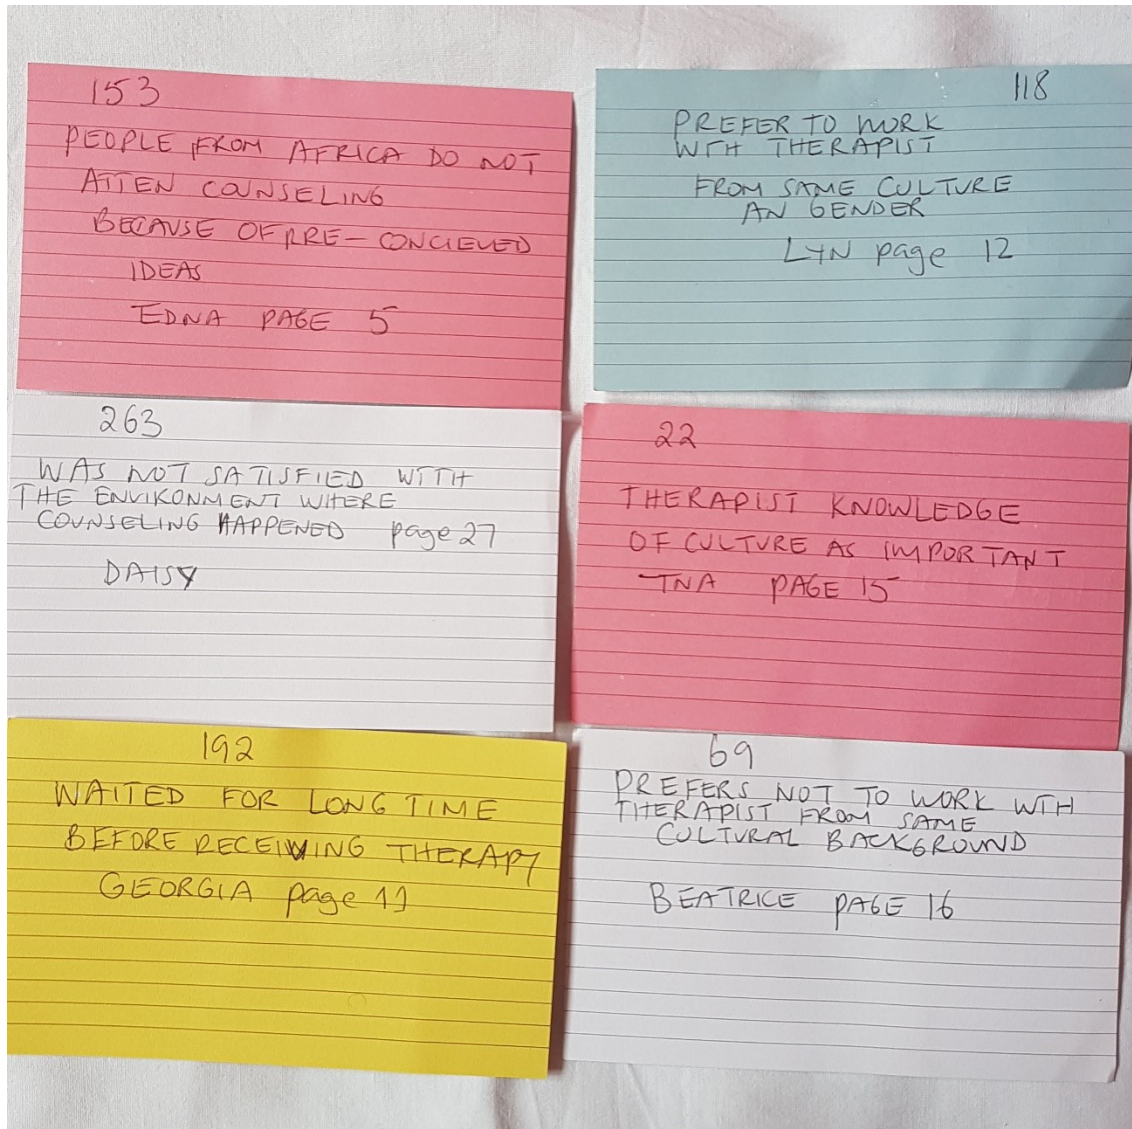 153
PEOPLE FROM AFRICA DO NOT
ATTEN COUNSELING
BECAUSE OF PRE-CONCIEVED
IDEAS
EDNA PAGE 5
118
PREFER TO WORK
WITH THERAPIST
FROM SAME CULTURE
AN GENDER
LYN page 12
263
WAS NOT SATISFIED WITH
THE ENVIRONMENT WHERE
COUNSELING HAPPENED page 27
DAISY
22
THERAPIST KNOWLEDGE
OF CULTURE AS IMPORTANT
TNA PAGE 15
192
WAITED FOR LONG TIME
BEFORE RECEIVING THERAPY
GEORGIA page 11
69
PREFERS NOT TO WORK WTH
THERAPIST FROM SAME
CULTURAL BACKGROUND
BEATRICE PAGE 16